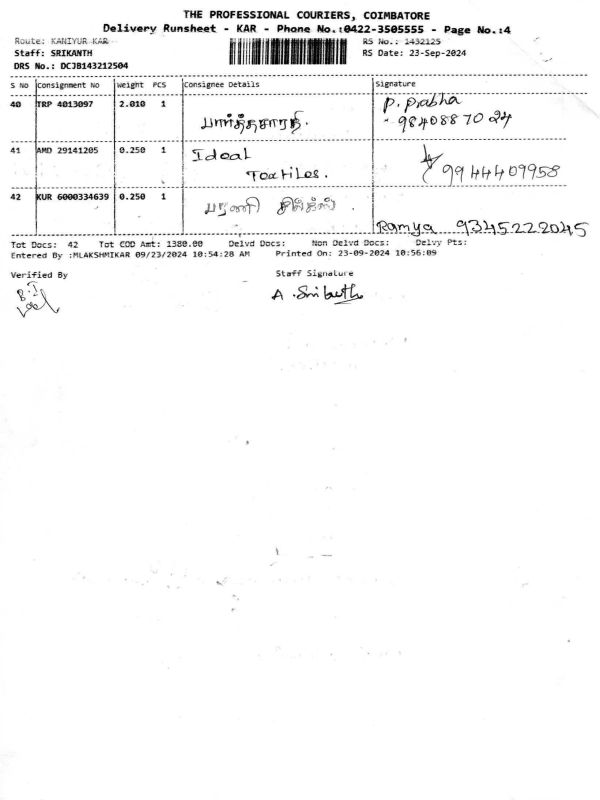 THE PROFESSIONAL COURIERS, COIMBATORE
Delivery Runsheet - KAR - Phone No.:0422-3505555 - Page No.:4
Route: KANIYUR KAR
RS No.: 1432125
Staff: SRIKANTH
RS Date: 23-Sep-2024
DRS No.: DCJB143212504
S No Consignment No Weight PCS Consignee Details Signature
40 TRP 4013097 2.010 1 பார்த்தசாரதி. P. Prabha
9840887024
41 AMD 29141205 0.250 1 Ideal
Textiles. 9944409958
42 KUR 6000334639 0.250 1 பரணி சில்க்ஸ்
Ramya 9345222045
Tot Docs: 42 Tot COD Amt: 1380.00 Delvd Docs: Non Delvd Docs: Delvy Pts:
Entered By :MLAKSHMIKAR 09/23/2024 10:54:28 AM Printed On: 23-09-2024 10:56:09
Verified By Staff Signature
A. Srikanth